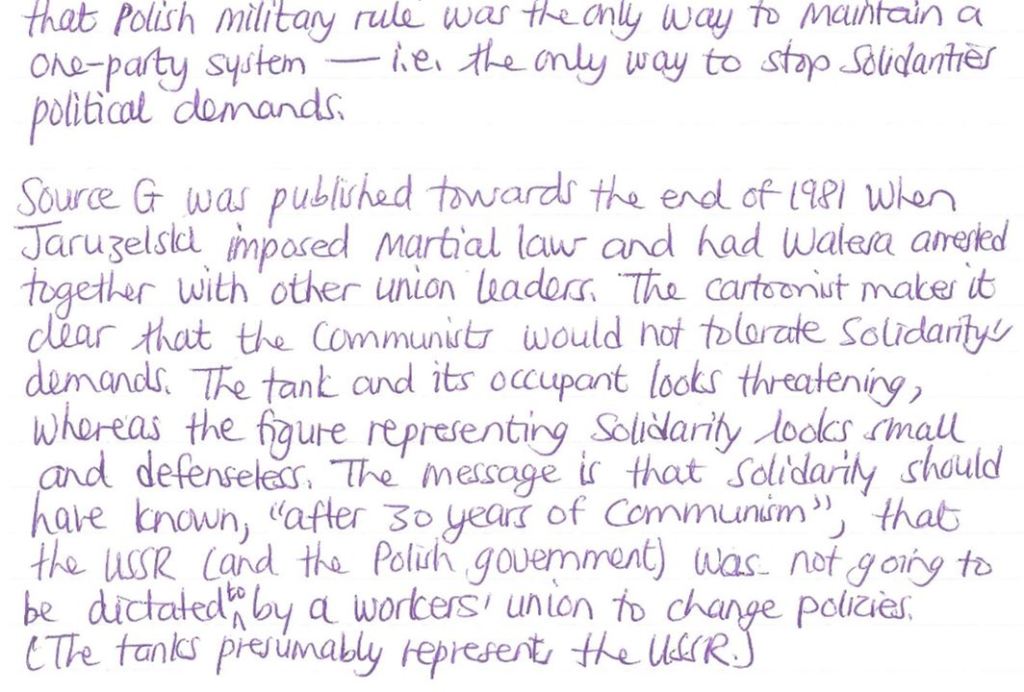 that Polish military rule was the only way to maintain a
one-party system — i.e. the only way to stop Solidarities
political demands.
Source G was published towards the end of 1981 when
Jaruzelski imposed martial law and had Walesa arrested
together with other union leaders. The cartoonist makes it
clear that the Communists would not tolerate Solidarity's
demands. The tank and its occupant looks threatening,
whereas the figure representing Solidarity looks small
and defenseless. The message is that Solidarity should
have known, "after 30 years of Communism", that
the USSR (and the Polish government) was not going to
be dictated to by a workers' union to change policies.
(The tanks presumably represents the USSR.)